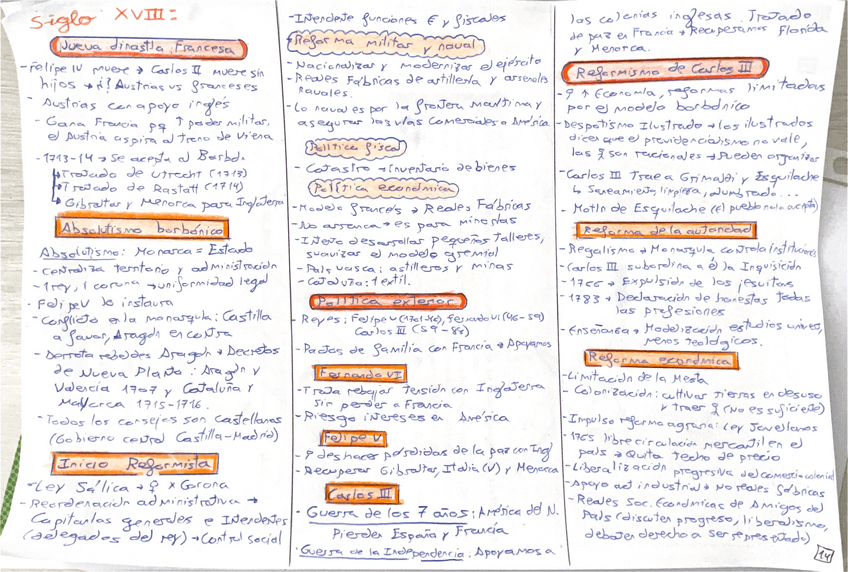 Siglo XVIII:
Nueva dinastía: Francesa
- Felipe IV muere → Carlos II muere sin
hijos → ¡! Austrias vs franceses
- Austrias con apoyo inglés
- Gana Francia pq ↑ poder militar,
el Austria aspira al trono de Viena
- 1713-14 → Se acepta al Borbón
↳ Tratado de Utrecht (1713)
↳ Tratado de Rastatt (1714)
↳ Gibraltar y Menorca para Inglaterra
Absolutismo borbónico
Absolutismo: Monarca = Estado
- Centraliza territorio y administración
- 1 rey, 1 corona → uniformidad legal
- Felipe V lo instaura
- Conflicto en la monarquía: Castilla
a favor, Aragón en contra
- Derrota rebeldes Aragón → Decretos
de Nueva Planta: Aragón y
Valencia 1707 y Cataluña y
Mallorca 1715-1716.
- Todos los consejos son castellanos
(Gobierno central Castilla-Madrid)
Inicio Reformista
- Ley Sálica → ♀ x Corona
- Reordenación administrativa →
Capitanías generales e Intendentes
(delegados del rey) → Control social
- Intendente funciones € y fiscales
Reforma militar y naval
- Nacionalizar y modernizar el ejército
- Reales Fábricas de artillería y arsenales
navales.
- Lo naval es por la frontera marítima y
asegurar las vías comerciales a América
Política fiscal
- Catastro → inventario de bienes
Política económica
- Modelo francés → Reales Fábricas
- No arranca → es para minorías
- Intento desarrollar pequeños talleres,
suavizar el modelo gremial
- País vasco: astilleros y minas
- Cataluña: textil.
Política exterior
- Reyes: Felipe V (1701-46), Fernando VI (46-59)
Carlos III (59-88)
- Pactos de familia con Francia → Apoyamos
Fernando VI
- Trata rebajar tensión con Inglaterra
sin perder a Francia
- Riesgo intereses en América
Felipe V
- deshacer pérdidas de la paz con Ingl
- Recuperar Gibraltar, Italia (V) y Menorca
Carlos III
- Guerra de los 7 años: América del N.
Pierden España y Francia
- Guerra de la Independencia: Apoyamos a
las colonias inglesas. Tratado
de paz en Francia → Recuperamos Florida
y Menorca.
Reformismo de Carlos III
- ↑ Economía, reformas limitadas
por el modelo borbónico
- Despotismo Ilustrado → los ilustrados
dicen que el providencialismo no vale,
las son racionales → Pueden organizar
- Carlos III Trae a Grimaldi y Esquilache
↳ Saneamiento, limpieza, alumbrado...
- Motín de Esquilache (El pueblo no acepta)
Reforma de la autoridad
- Regalismo → Monarquía controla instituciones
- Carlos III subordina a él la Inquisición
- 1766 → Expulsión de los jesuitas
- 1783 → Declaración de honestas todas
las profesiones
- Enseñanza → Modelización estudios univers,
menos teológicos.
Reforma económica
- Limitación de la Mesta
- Colonización: cultivar tierras en desuso
y traer (No es suficiente)
- Impulso reforma agraria: Ley Jovellanos
- 1765 libre circulación mercantil en el
país → Quita techo de precio
- Liberalización progresiva del comercio colonial
- Apoyo act industrial → No reales fábricas
- Reales Soc. Económicas de Amigos del
País (discuten progreso, liberalismo,
debaten derecho a ser representado)
14